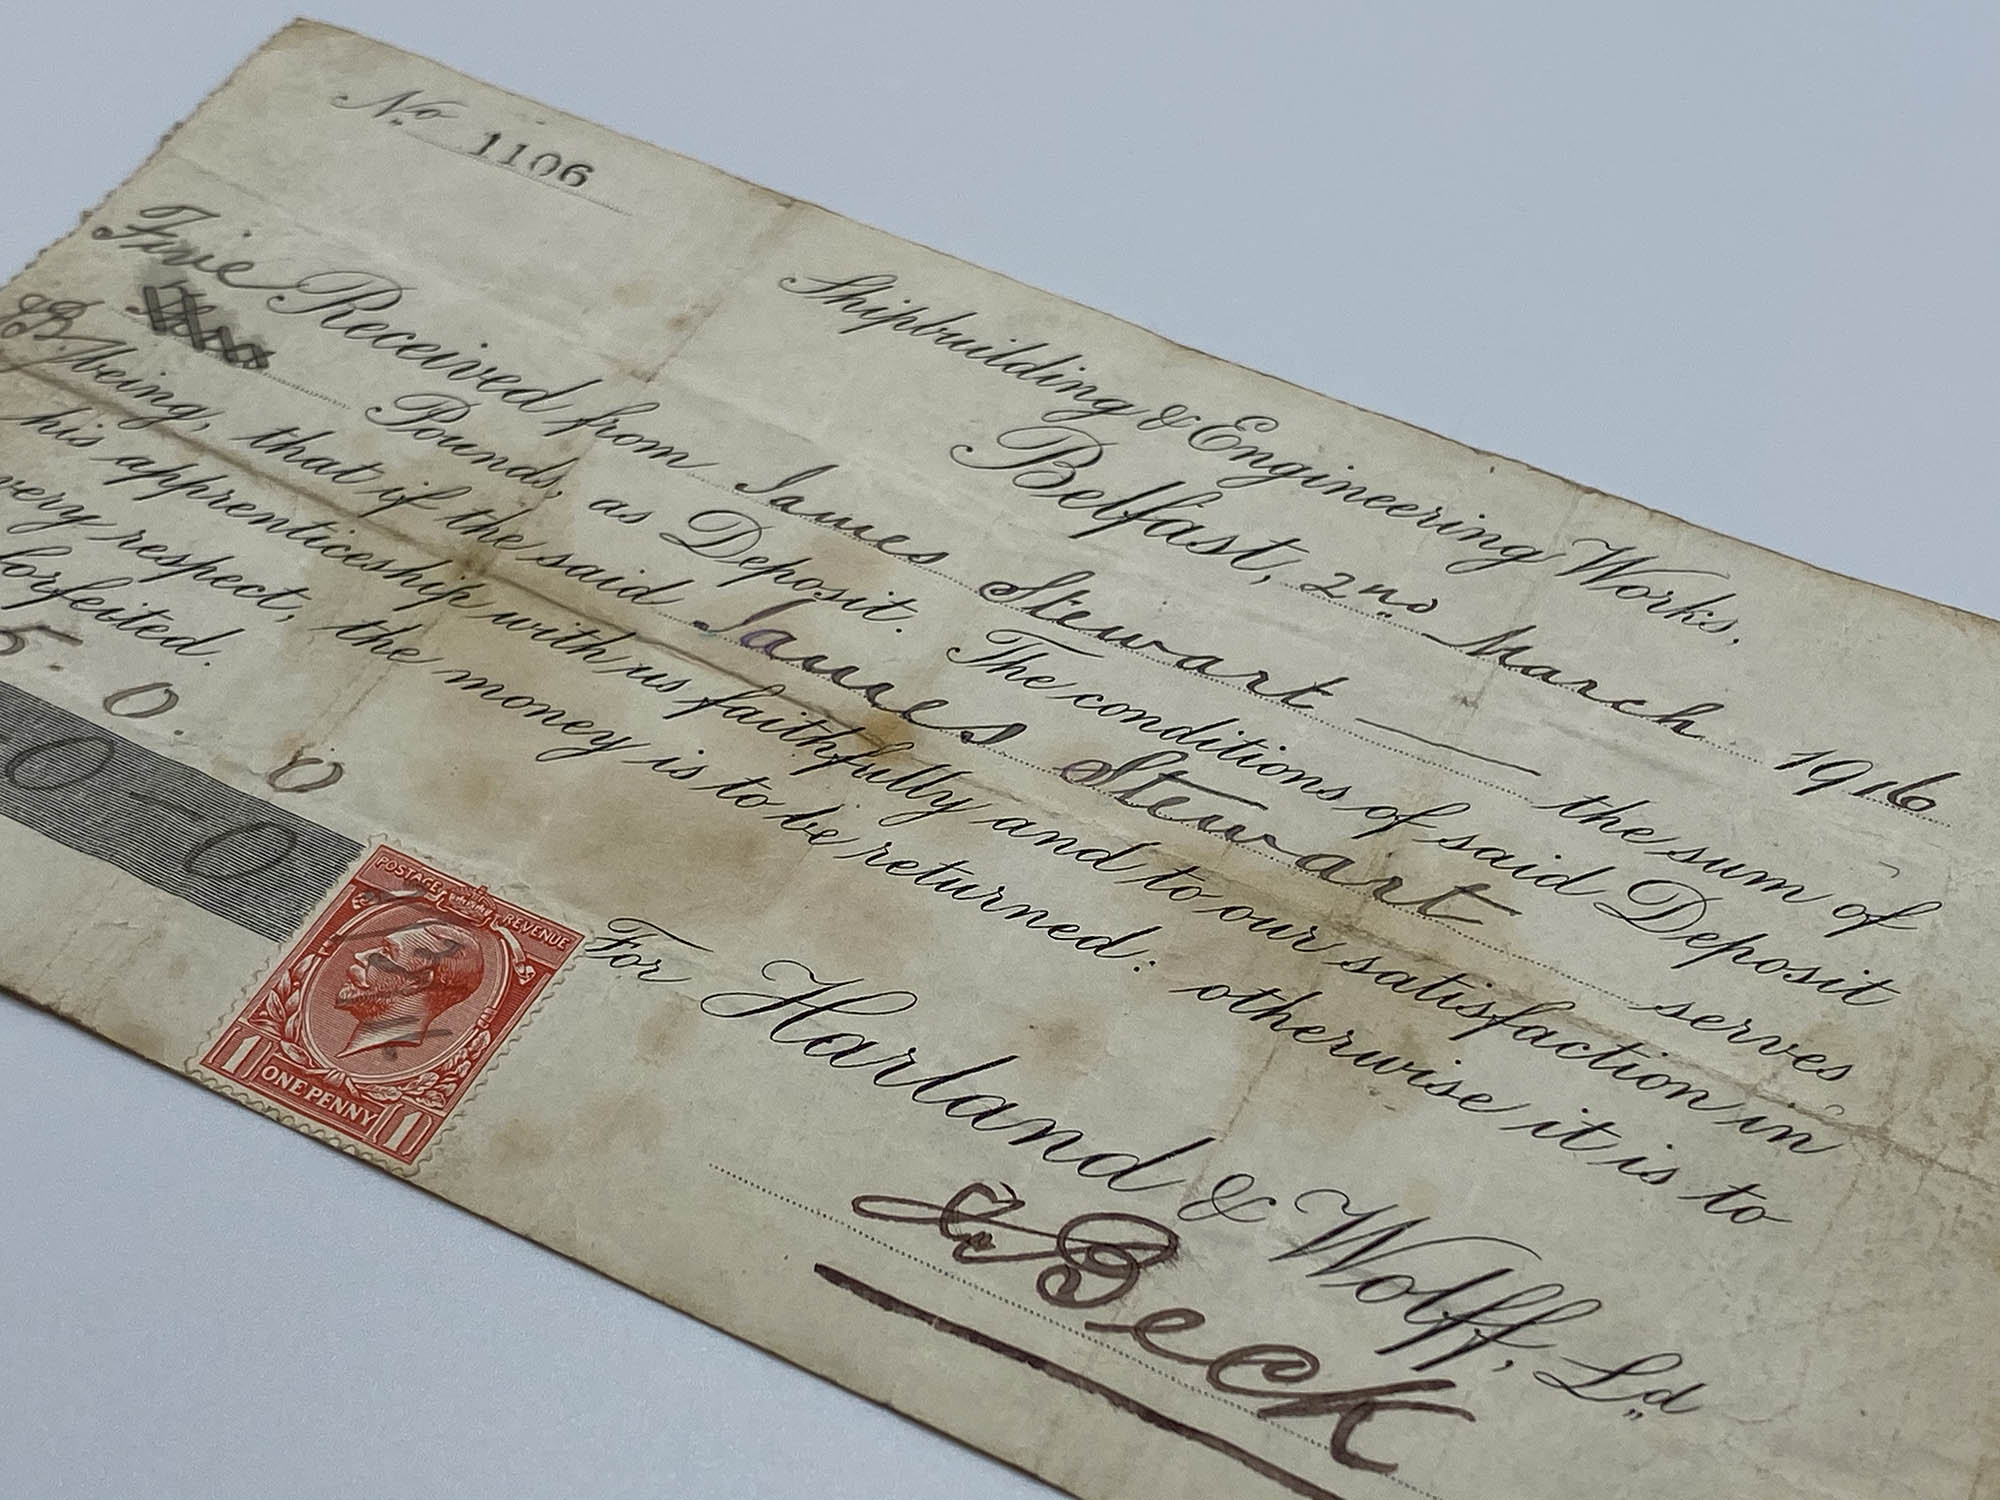 No. 1106
Shipbuilding & Engineering Works.
Belfast, 2nd March 1916
Received from James Stewart the sum of
Five Pounds, as Deposit. The conditions of said Deposit
being, that if the said James Stewart serves
his apprenticeship with us faithfully and to our satisfaction in
very respect, the money is to be returned: otherwise it is to
forfeited.
5. 0. 0
0-0
For Harland & Wolff, Ld
Beck
POSTAGE REVENUE
1 ONE PENNY 1